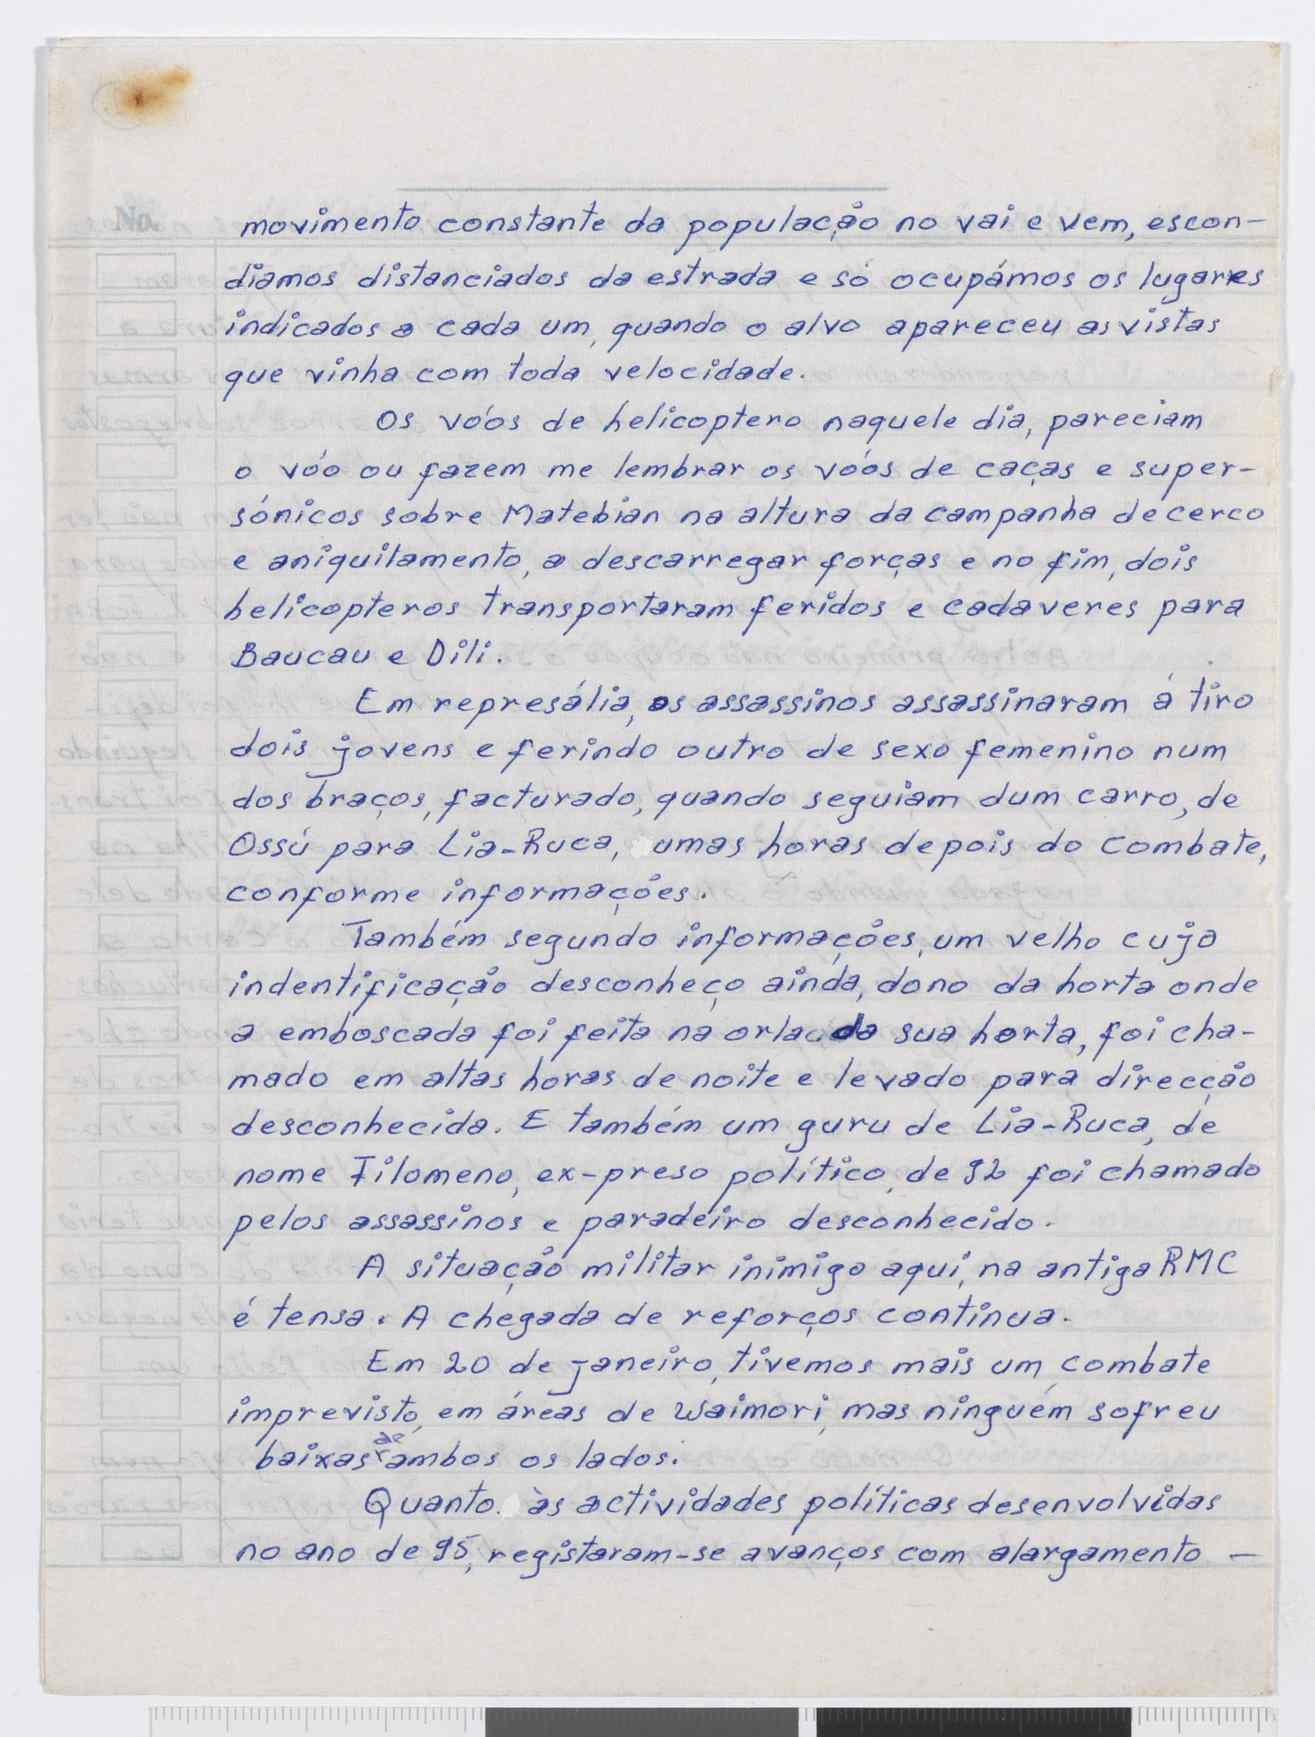 No.
movimento constante da população no vai e vem, escon-
diamos distanciados da estrada e só ocupámos os lugares
indicados a cada um, quando o alvo apareceu as vistas
que vinha com toda velocidade.
Os vóos de helicoptero naquele dia, pareciam
o vóo ou fazem me lembrar os vóos de caças e super-
sónicos sobre Matebian na altura da campanha de cerco
e aniquilamento, a descarregar forças e no fim, dois
helicopteros transportaram feridos e cadaveres para
Baucau e Dili.
Em represália, os assassinos assassinaram á tiro
dois jovens e ferindo outro de sexo femenino num
dos braços, facturado, quando seguiam dum carro, de
Ossú para Lia-Ruca, umas horas depois do combate,
conforme informações.
Também segundo informações, um velho cuja
indentificação desconheço ainda, dono da horta onde
a emboscada foi feita na orla da sua horta, foi cha-
mado em altas horas de noite e levado para direcção
desconhecida. E também um guru de Lia-Ruca, de
nome Filomeno, ex-preso político, de 92 foi chamado
pelos assassinos e paradeiro desconhecido.
A situação militar inimigo aqui, na antiga RMC
é tensa. A chegada de reforços continua.
Em 20 de janeiro, tivemos mais um combate
imprevisto, em áreas de Waimori, mas ninguém sofreu
baixas de ambos os lados.
Quanto às actividades políticas desenvolvidas
no ano de 95, registaram-se avanços com alargamento -